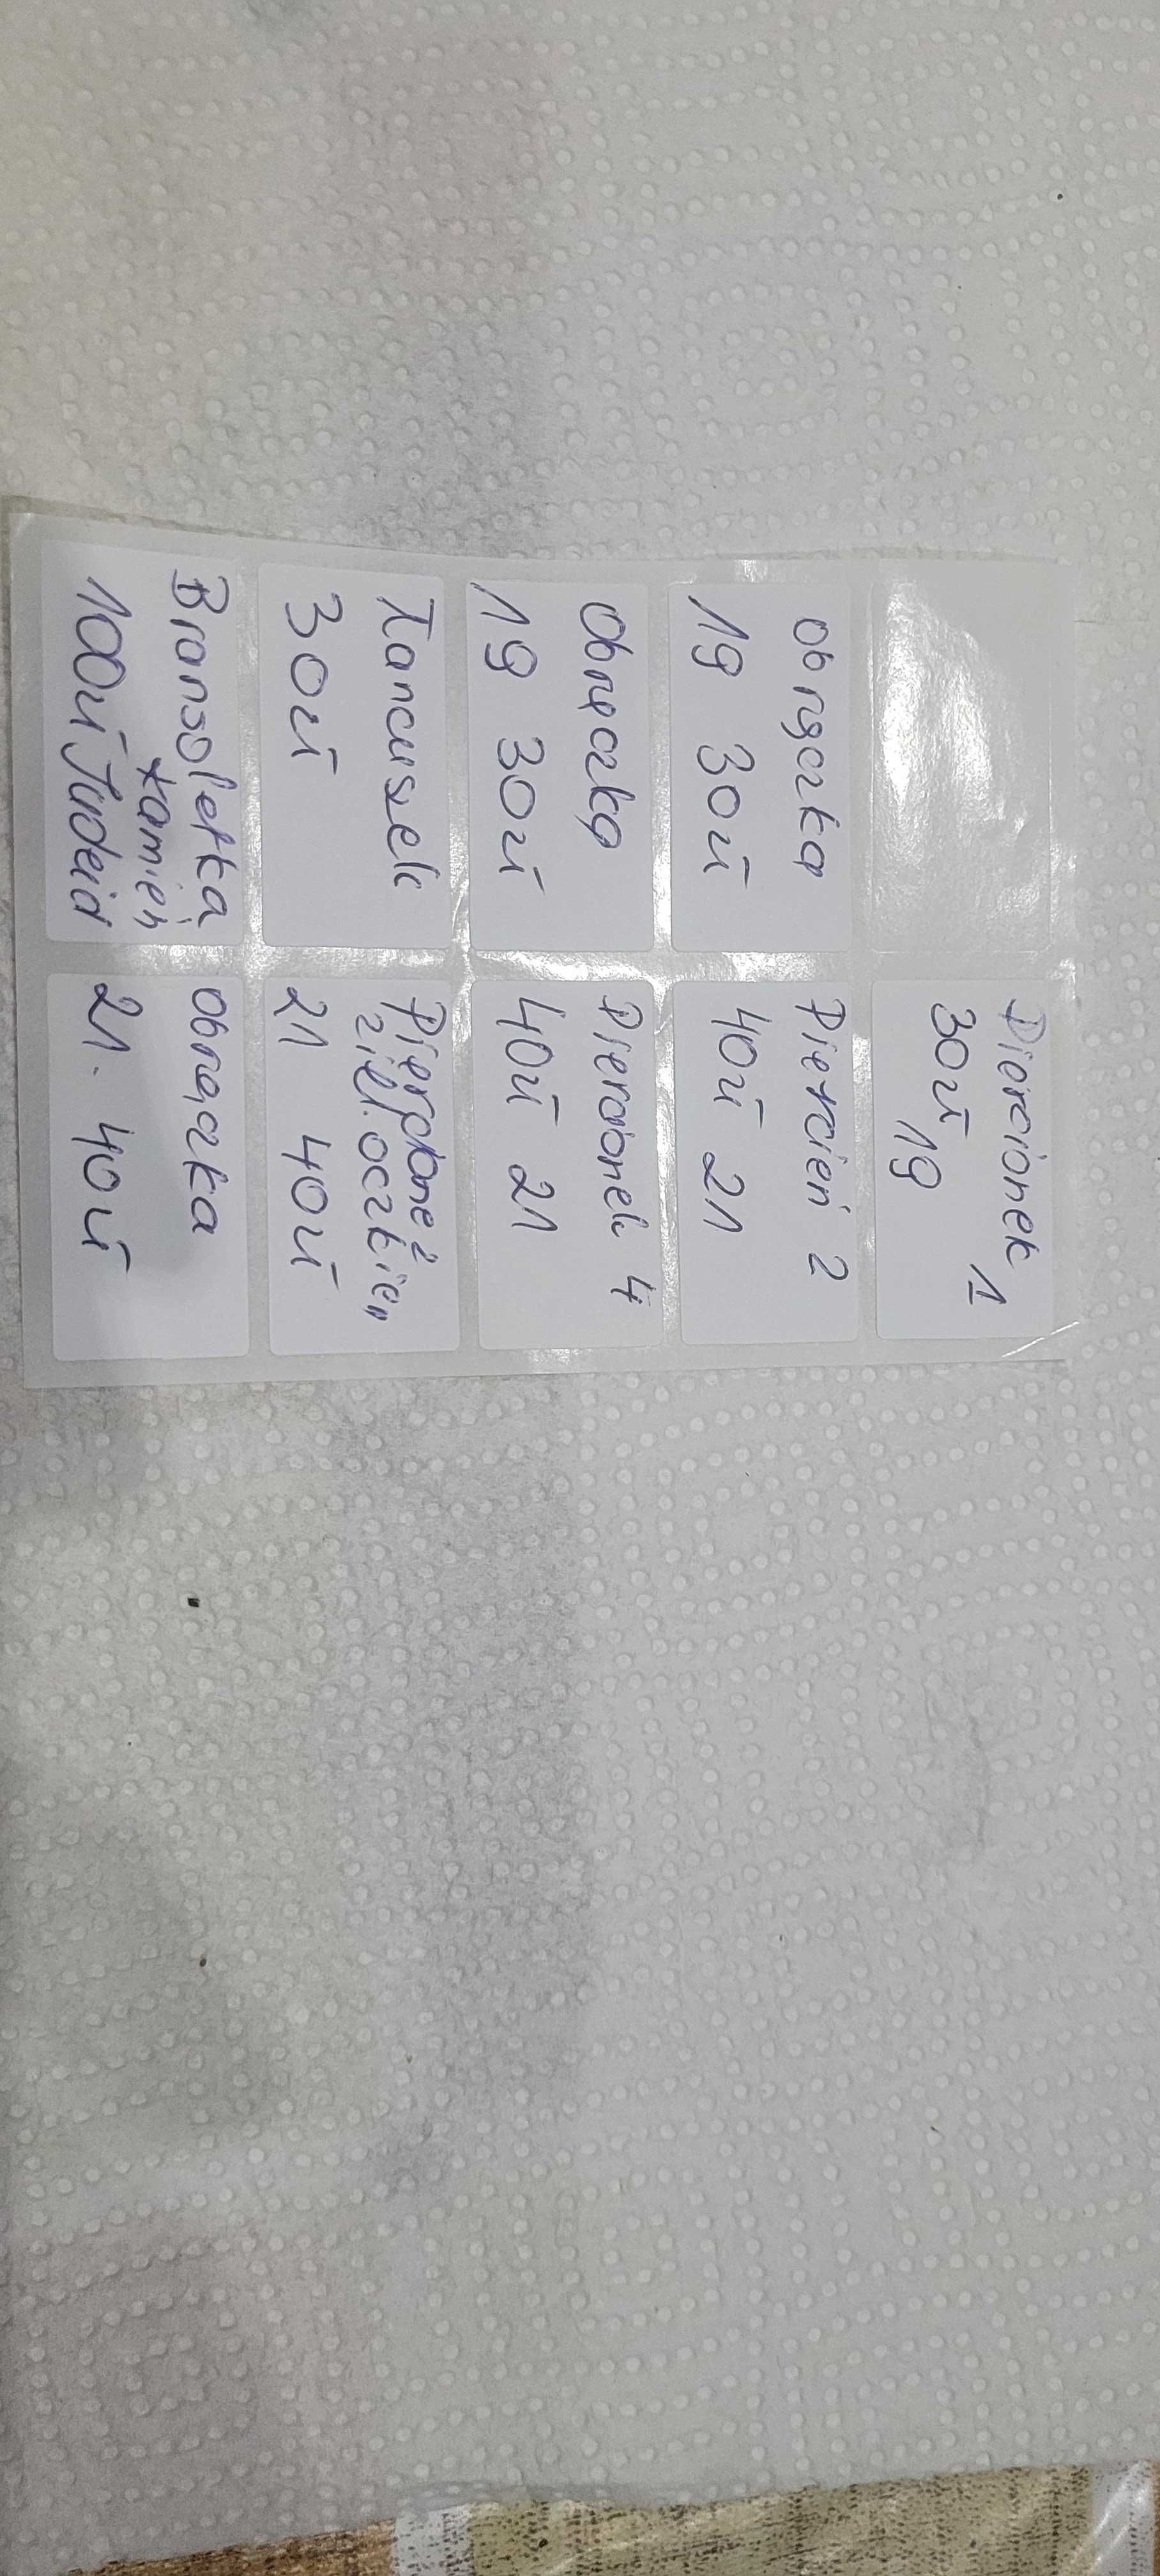 Pierścionek
1
30zł
19
obrączka
19 30zł
Pierścień 2
40zł 21
Obrączka
19 30zł
Pierścionek 4
40zł 21
Łancuszek
30zł
z oczkiem
21 40zł
Bransoletka
kamień
100zł
obrączka
21. 40zł